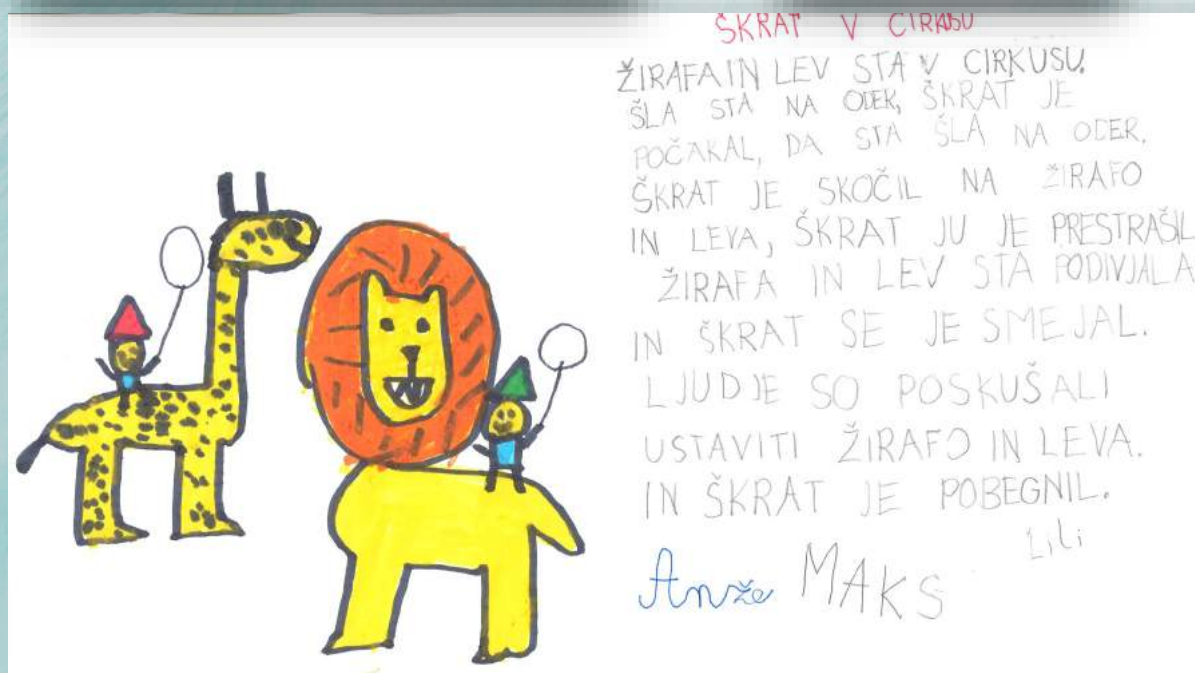 ŠKRAT V CIRKUSU
ŽIRAFA IN LEV STA V CIRKUSU.
ŠLA STA NA ODER, ŠKRAT JE
POČAKAL, DA STA ŠLA NA ODER.
ŠKRAT JE SKOČIL NA ŽIRAFO
IN LEVA, ŠKRAT JU JE PRESTRAŠIL
ŽIRAFA IN LEV STA PODIVJALA
IN ŠKRAT SE JE SMEJAL.
LJUDJE SO POSKUŠALI
USTAVITI ŽIRAFO IN LEVA.
IN ŠKRAT JE POBEGNIL.
Lili
Anže MAKS